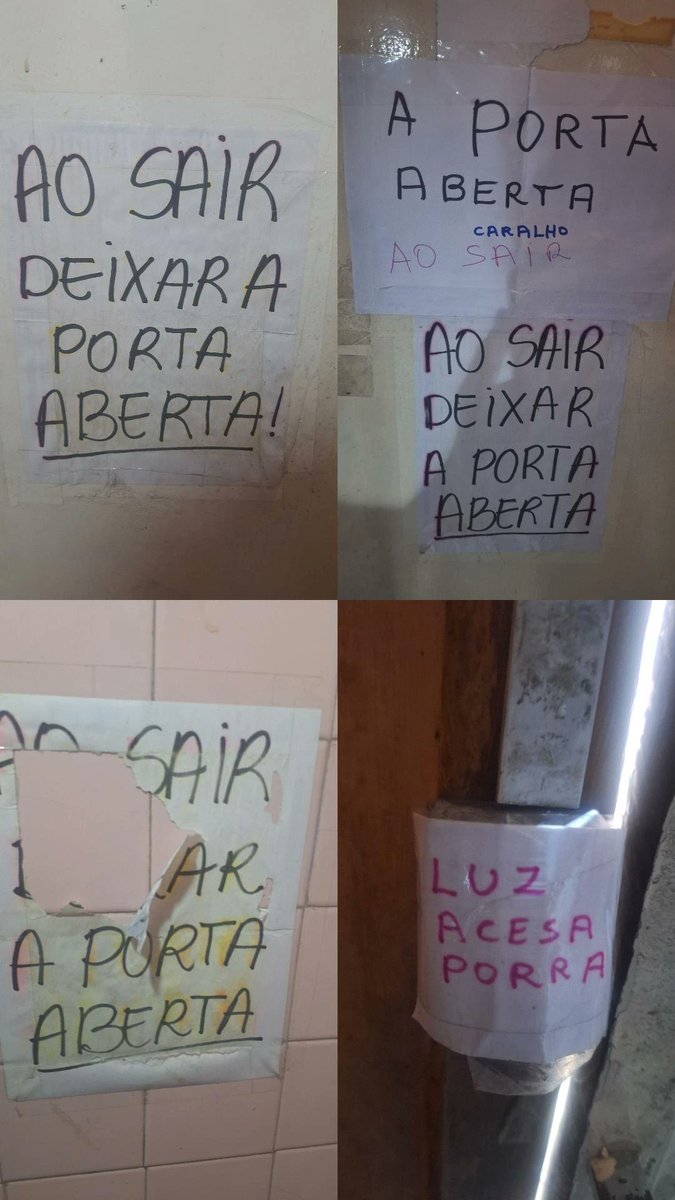 AO SAIR
DEIXAR A
PORTA
ABERTA!
A PORTA
ABERTA
CARALHO
AO SAIR
AO SAIR
DEIXAR
A PORTA
ABERTA
AO SAIR
AR
A PORTA
ABERTA
LUZ
ACESA
PORRA